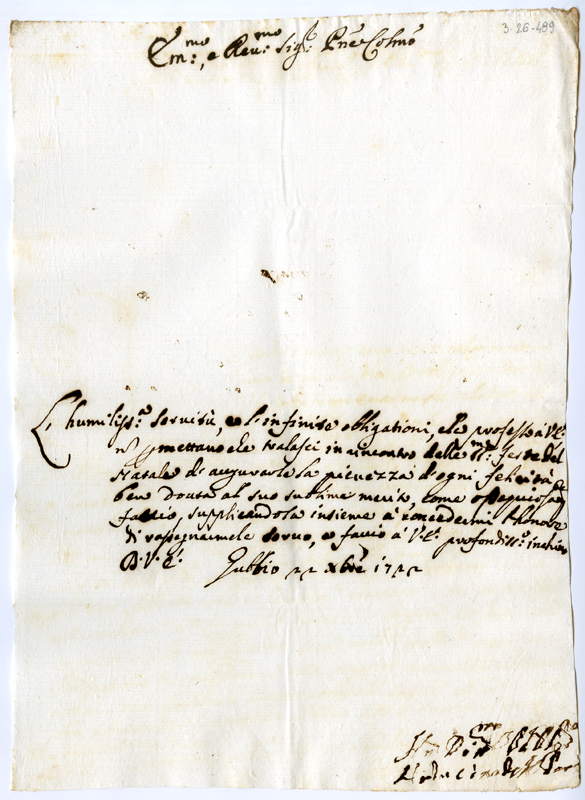 3-26-489
Em:mo, e Reu:mo Sig:r Pne Colmo
L'humiliss:a seruitù, e l'infinite obligationi, che professo à V.E:
nõ pmettano che tralasci in incontro delle SS:me feste del
Natale di augurarle la pienezza d'ogni felicità
ben douta al suo sublime merito, come ossequiosam
faccio, supplicandola insieme à concedermi l'honore
di rassegnarmele seruo, e faccio à V.E: profondiss:o inchino
D.V.E: Gubbio 22 xbre 1722